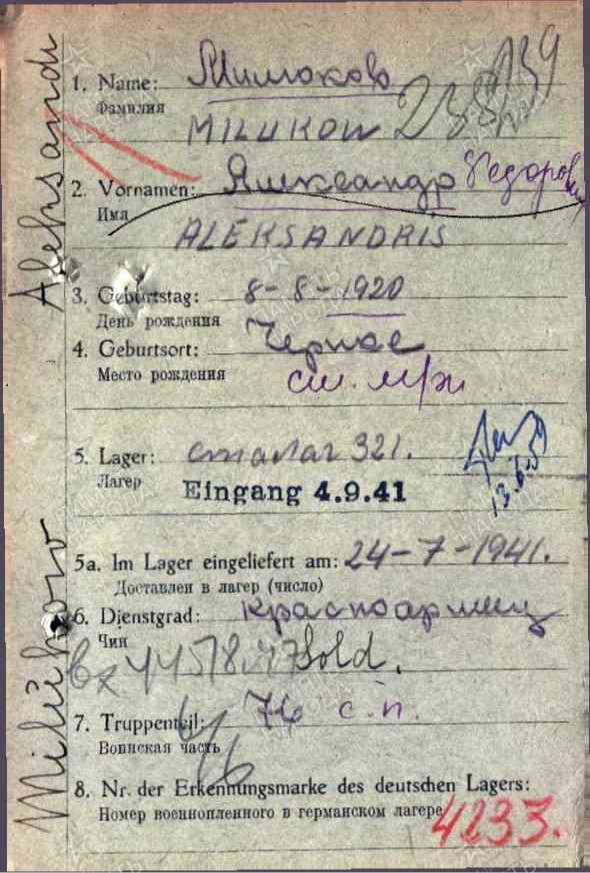 1. Name: Милюков
Фамилия
MILUKOW
2. Vornamen: Александр Федорович
Имя
ALEKSANDRIS
3. Geburtstag: 8-8-1920
День рождения
4. Geburtsort: Черное
Место рождения
5. Lager: сталаг 321.
Лагерь
Eingang 4.9.41
5a. Im Lager eingeliefert am: 24-7-1941.
Доставлен в лагерь (число)
6. Dienstgrad: красноармеец
Чин
Sold.
7. Truppenteil: 76 с.п.
Воинская часть
8. Nr. der Erkennungsmarke des deutschen Lagers:
Номер военнопленного в германском лагере
4233.
Milukow Aleksandr